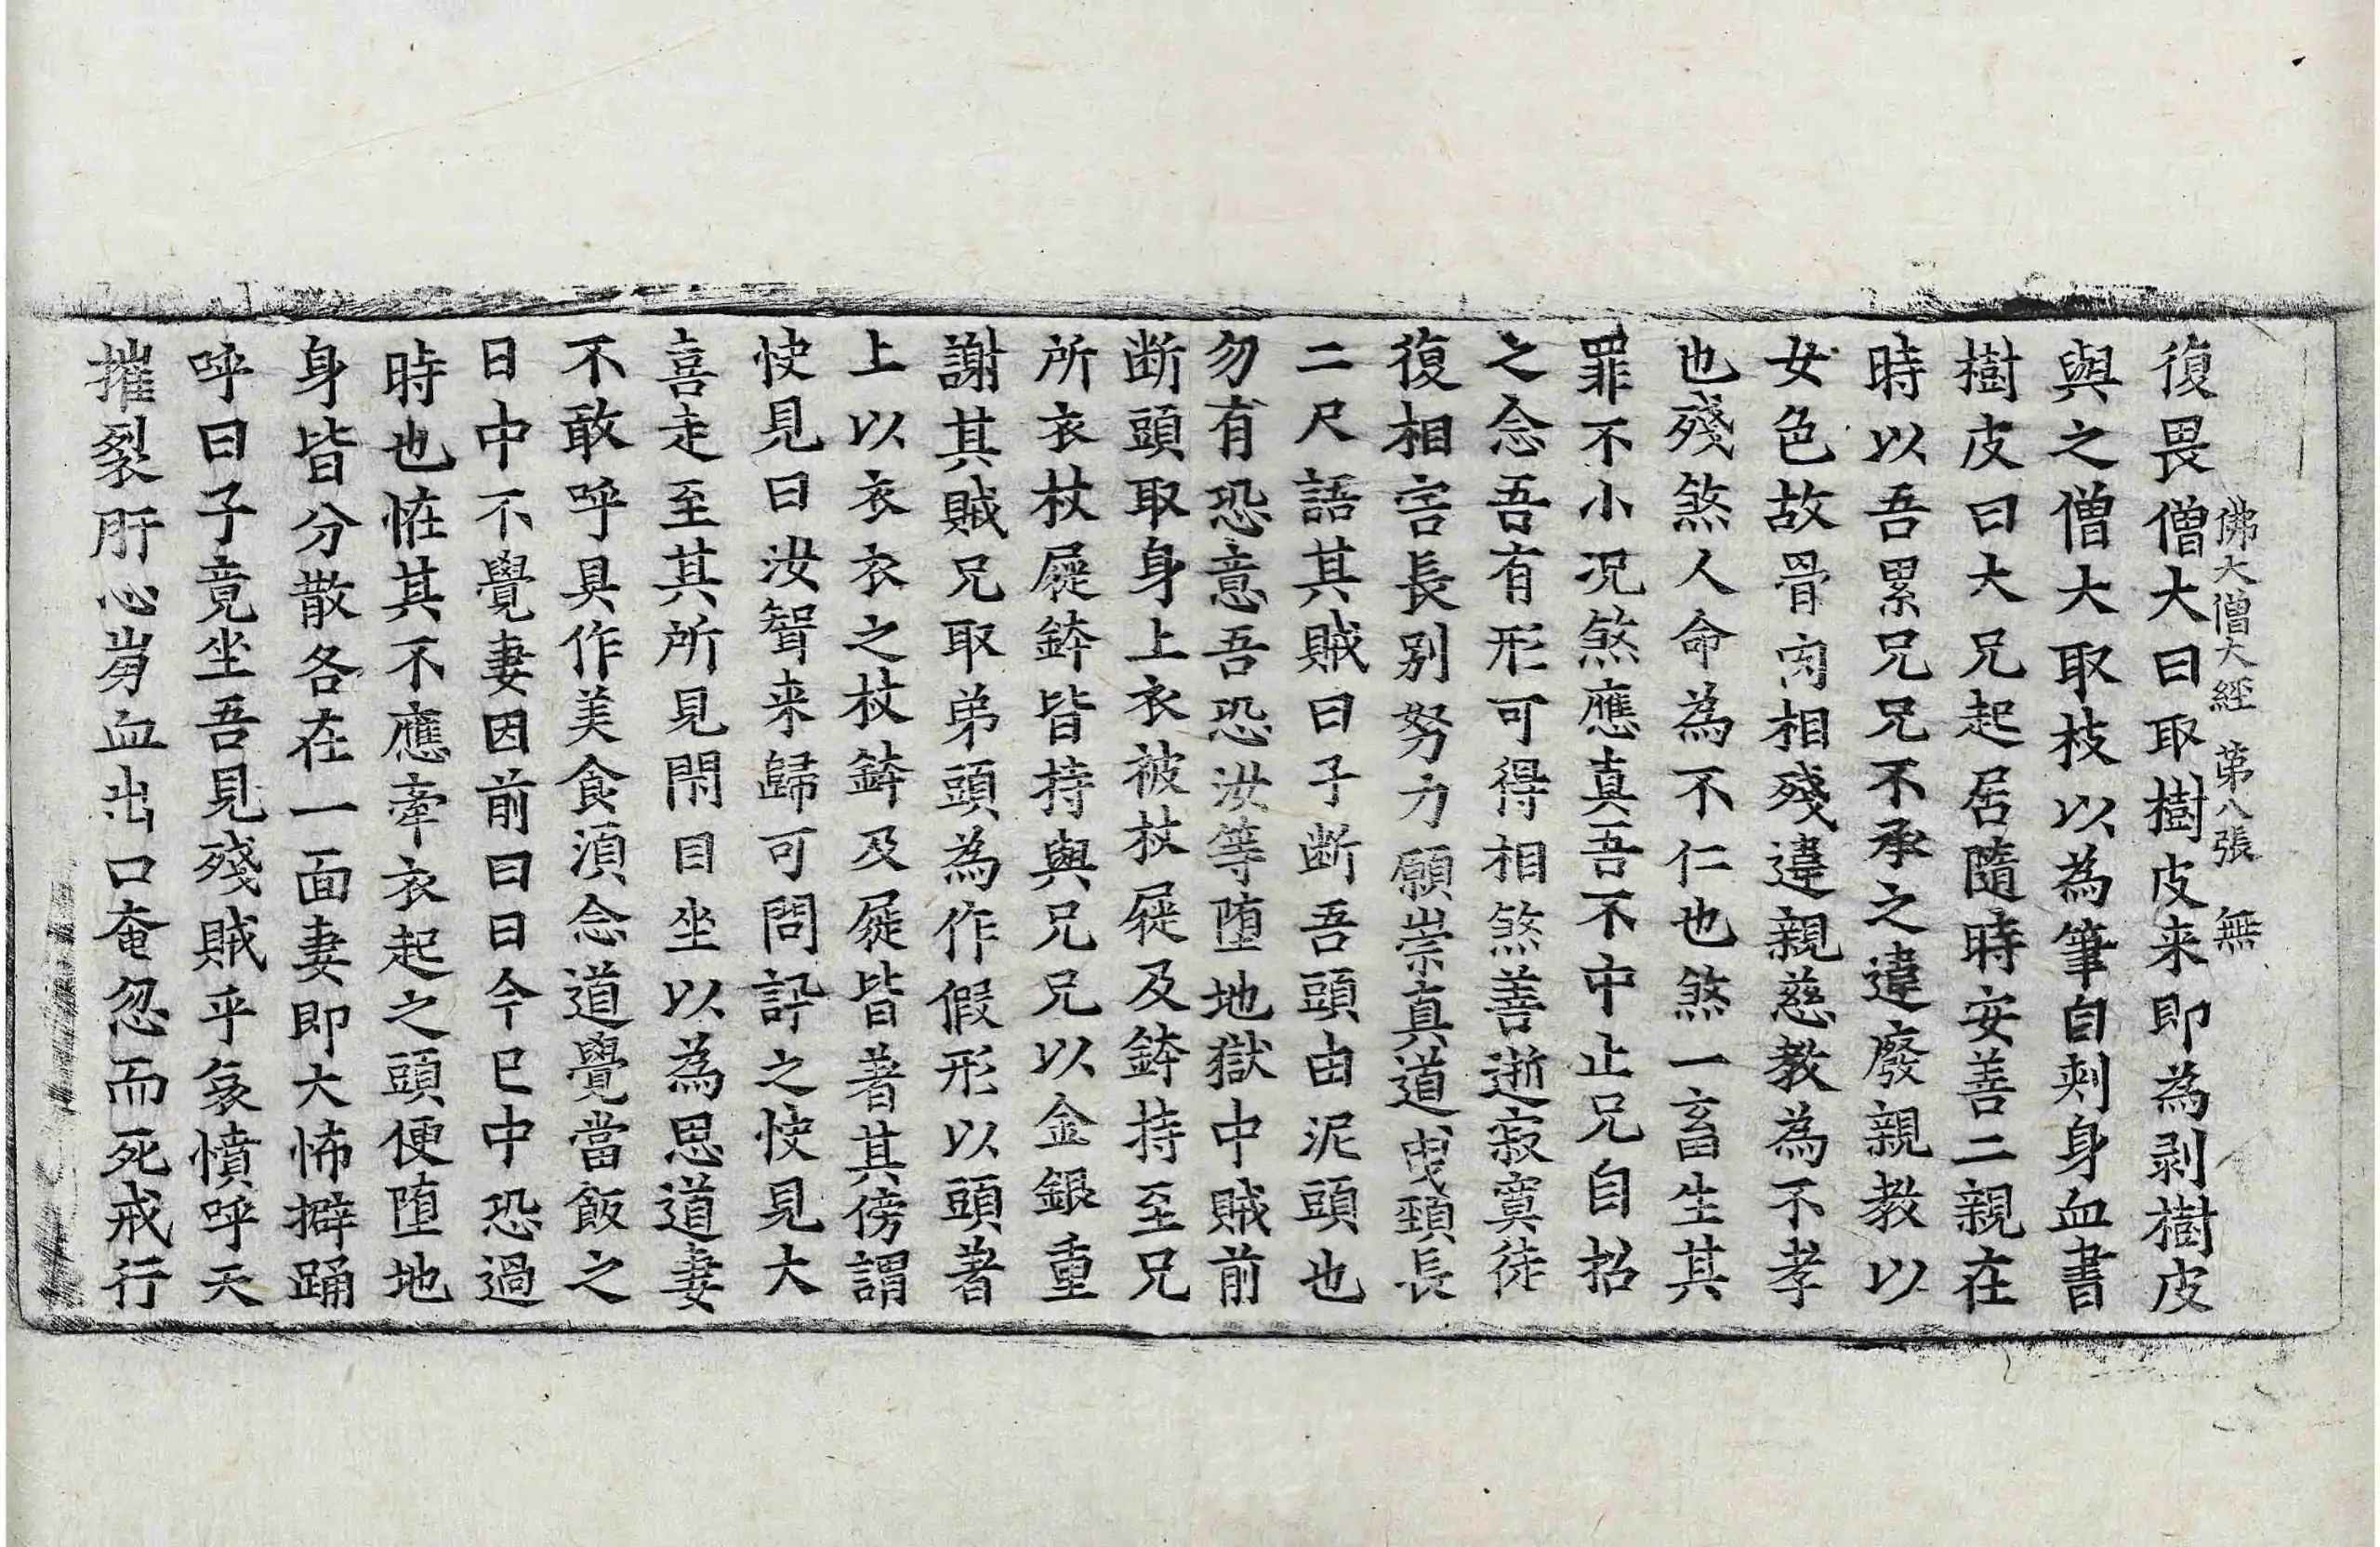 佛大僧大經 第八張 無
復畏僧大曰取樹皮来即為剥樹皮
與之僧大取枝以為筆自刾身血書
樹皮曰大兄起居隨時安善二親在
時以吾累兄兄不承之違廢親教以
女色故骨肉相殘違親慈教為不孝
也殘煞人命為不仁也煞一畜生其
罪不小况煞應真吾不中止兄自招
之念吾有形可得相煞善逝寂寞徒
復相害長別努力願崇真道曳頸長
二尺語其賊曰子断吾頭由泥頭也
勿有恐意吾恐汝等堕地獄中賊前
断頭取身上衣被杖屣及鉢持至兄
所衣杖屣鉢皆持與兄兄以金銀重
謝其賊兄取弟頭為作假形以頭著
上以衣衣之杖鉢及屣皆著其傍謂
快見曰汝聟来歸可問訊之快見大
喜走至其所見閇目坐以為思道妻
不敢呼具作美食湏念道覺當飯之
日中不覺妻因前曰日今已中恐過
時也恠其不應牽衣起之頭便堕地
身皆分散各在一面妻即大怖擗踊
呼曰子竟坐吾見殘賊乎哀憤呼天
摧裂肝心崩血出口奄忽而死戒行